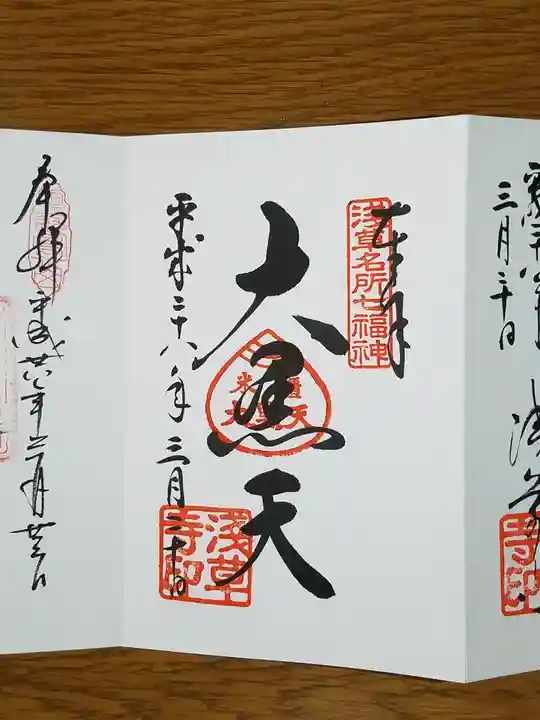 三月二十日
浅草
寺印
奉拝
浅草名所七福神
大黒天
平成二十八年三月二十日
浅草
寺印
奉拝
平成廿八年三月廿三日